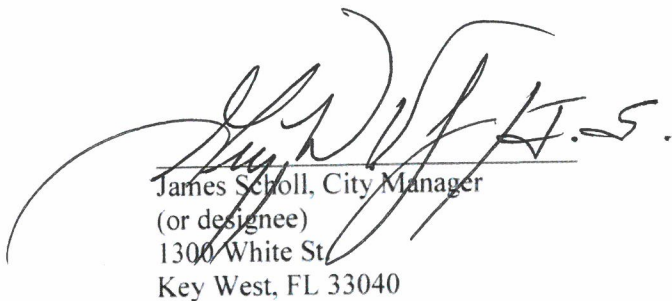 J.S.
James Scholl, City Manager
(or designee)
1300 White St
Key West, FL 33040